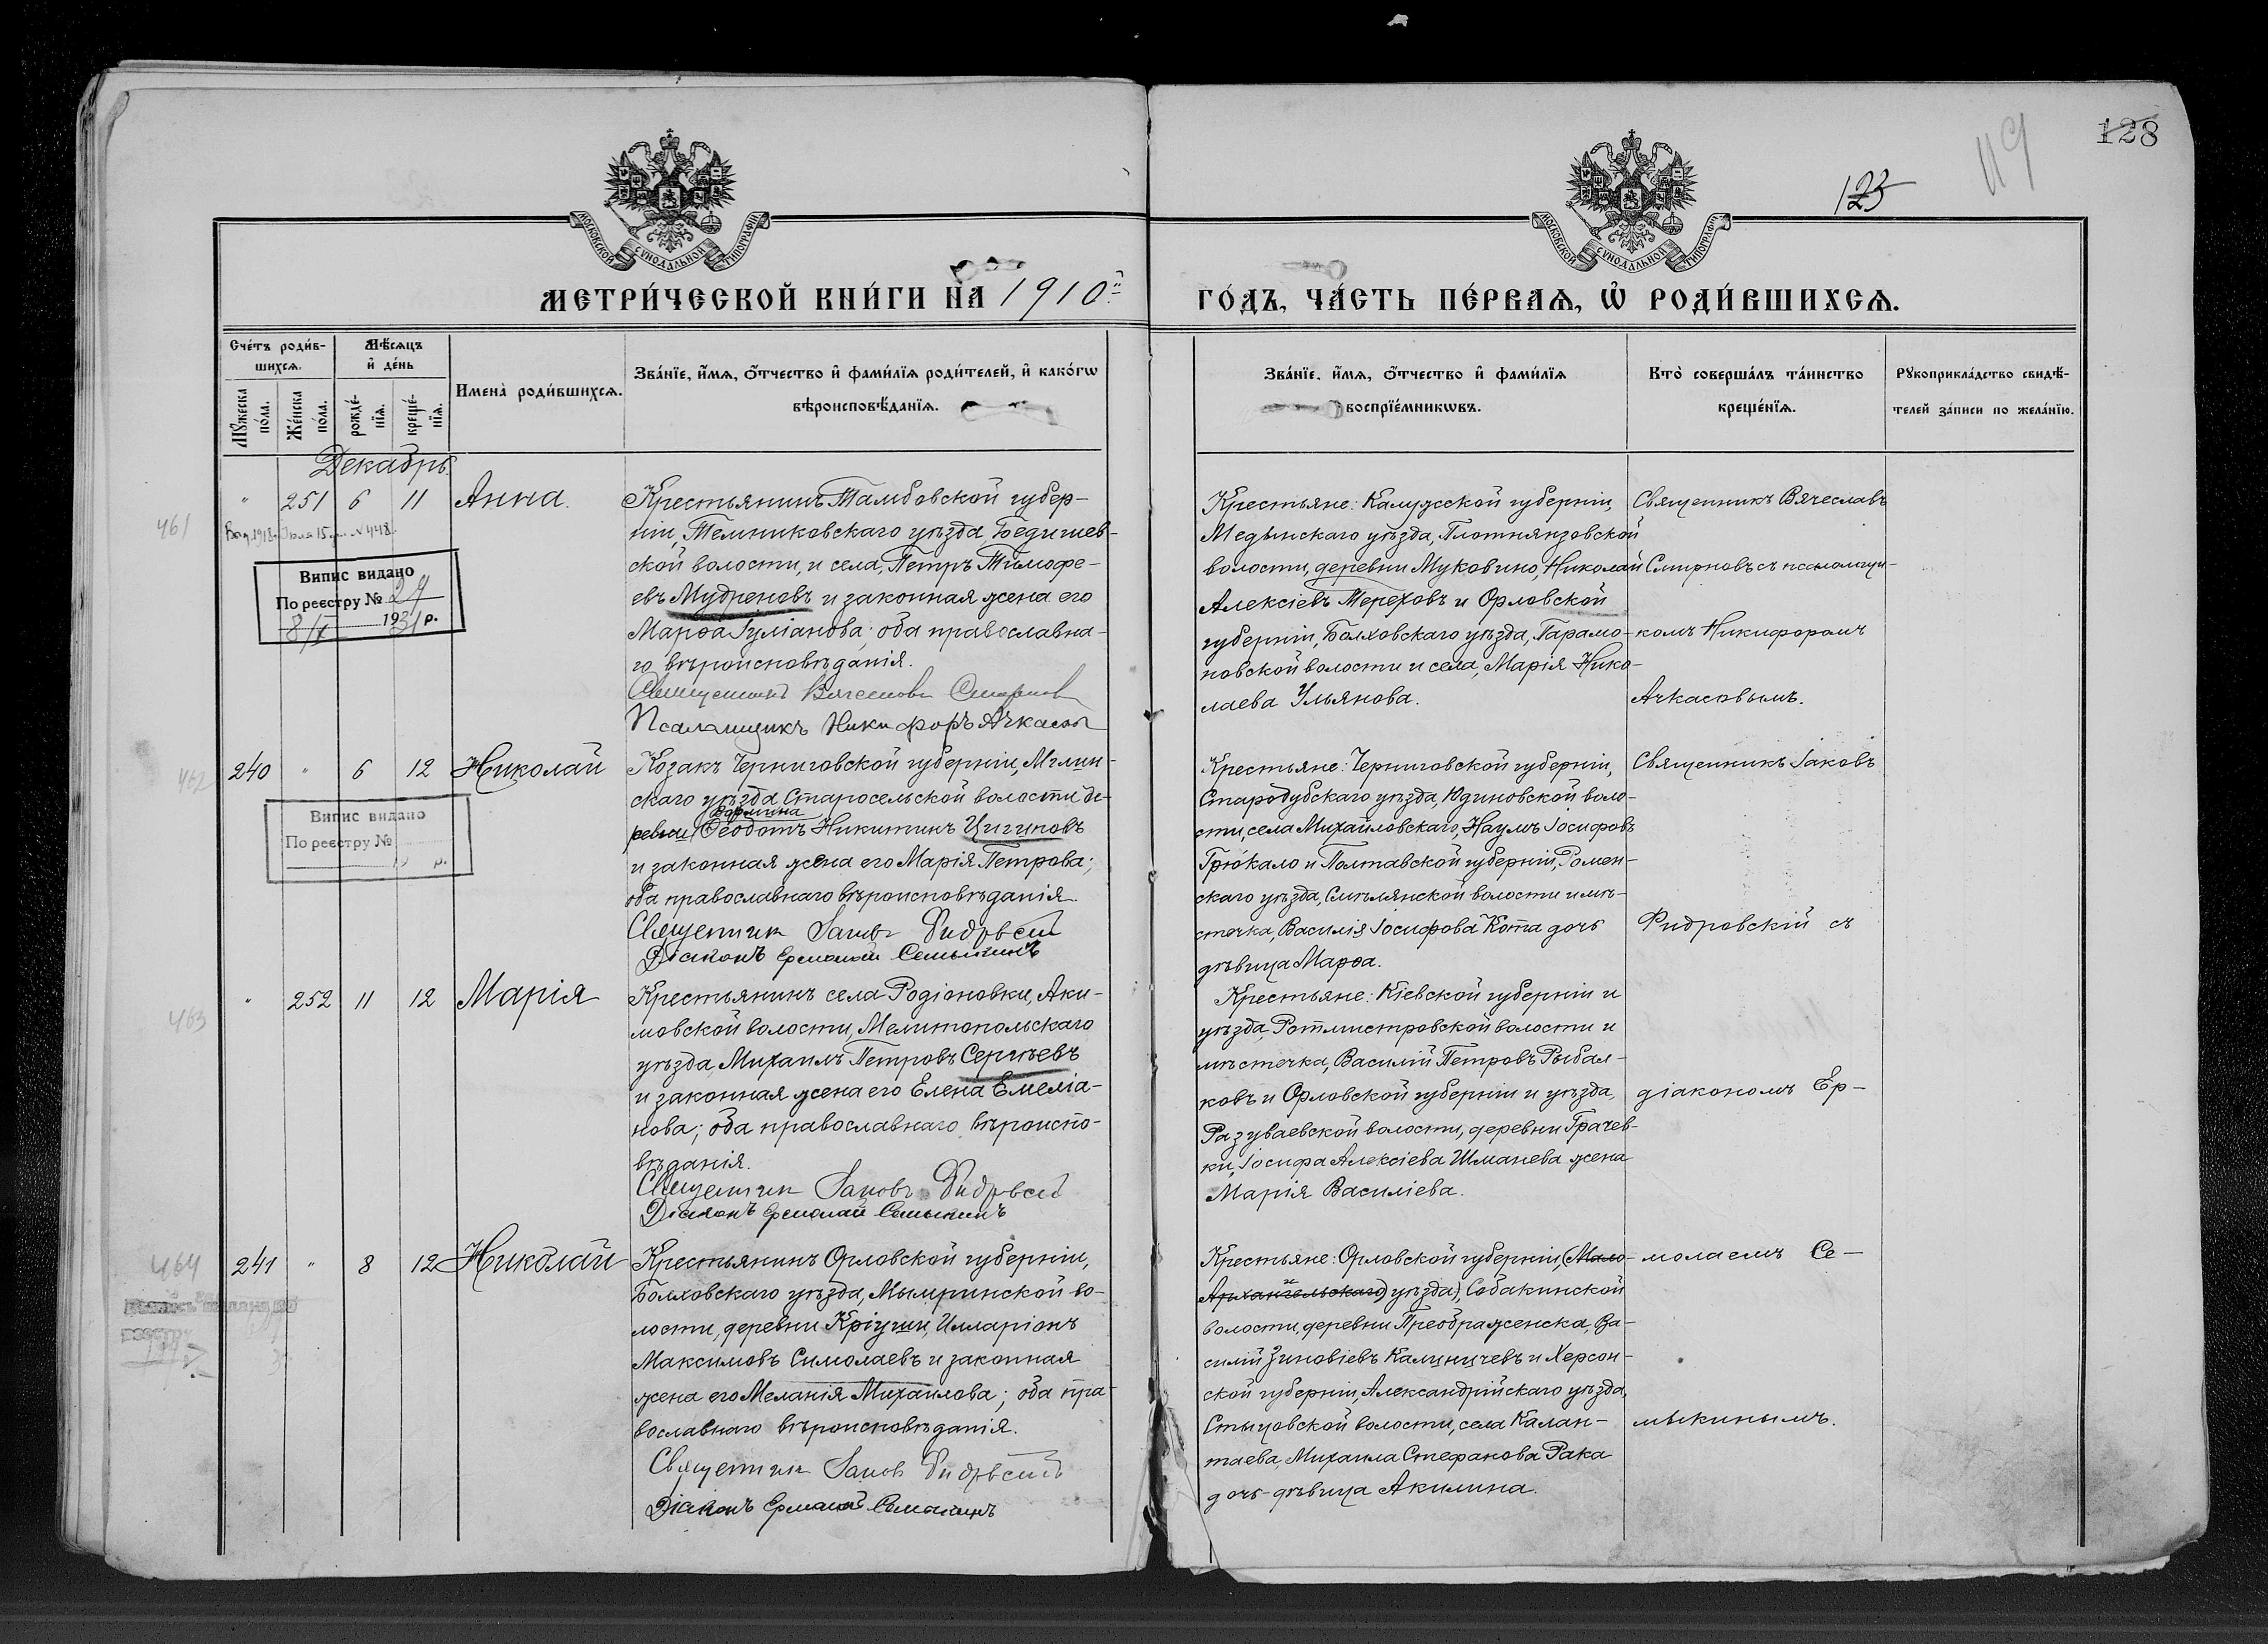 128
119
123
МОСКОВСКОЙ СУНОДАЛЬНОЙ ТИПОГРАФІИ
МОСКОВСКОЙ СУНОДАЛЬНОЙ ТИПОГРАФІИ
МЕТРИ́ЧЕСКОЙ КНИ́ГИ НА 1910й
ГО́ДЪ, ЧА́СТЬ ПЕ́РВАѦ, Ѡ҆ РОДИ́ВШИХСѦ.
Сче́тъ роди́в-
шихсѧ.
Мѣ́сѧцъ
и҆ де́нь
Мꙋжеска по́ла.
Же́нска по́ла.
рожде́-
нїѧ.
креще́-
нїѧ.
Имена̀ роди́вшихсѧ.
Зва́нїе, и҆́мѧ, ѻ҆́тчество и҆ фами́лїѧ роди́телей, и҆ како́гѡ
вѣроисповѣ́данїѧ.
Зва́нїе, и҆́мѧ, ѻ҆́тчество и҆ фами́лїѧ
воспрїе́мникѡвъ.
Кто̀ соверша́лъ та́инство
креще́нїѧ.
Рꙋкоприкла́дство свидѣ́-
телей за́писи по жела́нїю.
Декабрь.
461
" 251 6 11 Анна.
Крестьянинъ Тамбовской губер-
ніи, Темниковскаго уѣзда, Бедишев-
ской волости, и села, Петръ Тимофе-
евъ Мудреновъ и законная жена его
Марѳа Іуліанова; оба православна-
го вѣроисповѣданія.
Священникъ Вячеславъ Смирновъ
Псаломщикъ Никифоръ Ачкасовъ
1918 Іюля 15 № 448
Випис видано
По реєстру № 29
8/I 1931 р.
Крестьяне: Калужской губерніи,
Медынскаго уѣзда, Плотнянзовской
волости, деревни Муковино, Николай
Алексіевъ Мереховъ и Орловской
губерніи, Болховскаго уѣзда, Парамо-
новской волости и села, Марія Нико-
лаева Ульянова.
Священникъ Вячеславъ
Смирновъ съ псаломщи-
комъ Никифоромъ
Ачкасовымъ.
462
240 " 6 12 Николай
Козакъ Черниговской губерніи, Мглин-
скаго уѣзда Старосельской волости де-
ревни Ѳеодотъ Никитинъ Цигиповъ
и законная жена его Марія Петрова;
оба православнаго вѣроисповѣданія.
Священникъ Іаковъ Фидровскій
Діаконъ Ермолай Семыкинъ
Випис видано
По реєстру №
19 р.
Крестьяне: Черниговской губерніи,
Стародубскаго уѣзда, Юдиновской воло-
сти, села Михайловскаго, Наумъ Іосифовъ
Грюкало и Полтавской губерніи, Ромен-
скаго уѣзда, Смѣлянской волости и мѣ-
стечка, Василія Іосифова Кота дочь
дѣвица Марѳа.
Священникъ Іаковъ
Фидровскій съ
463
" 252 11 12 Марія
Крестьянинъ села Родіоновки, Аки-
мовской волости, Мелитопольскаго
уѣзда, Михаилъ Петровъ Сергѣевъ
и законная жена его Елена Емеліа-
нова; оба православнаго вѣроиспо-
вѣданія.
Священникъ Іаковъ Фидровскій
Діаконъ Ермолай Семыкинъ
Крестьяне: Кіевской губерніи и
уѣзда, Ротмистровской волости и
мѣстечка, Василій Петровъ Рыбал-
ковъ и Орловской губерніи и уѣзда,
Разуваевской волости, деревни Грачев-
ки, Іосифа Алексіева Шманева жена
Марія Василіева.
діакономъ Ер-
464
241 " 8 12 Николай
Крестьянинъ Орловской губерніи,
Болховскаго уѣзда, Мымринской во-
лости, деревни Кріуши, Илларіонъ
Максимовъ Симолаевъ и законная
жена его Меланія Михаилова; оба пра-
вославнаго вѣроисповѣданія.
Священникъ Іаковъ Фидровскій
Діаконъ Ермолай Семыкинъ
Крестьяне: Орловской губерніи, (Мало-
Архангельскаго) уѣзда), Собакинской
волости, деревни Преображенска, Ва-
силій Зиновіевъ Калиничевъ и Херсон-
ской губерніи, Александрійскаго уѣзда,
Стыцовской волости, села Калан-
таева, Михаила Стефанова Рака
дочь-дѣвица Акилина.
молаемъ Се-
мыкинымъ.